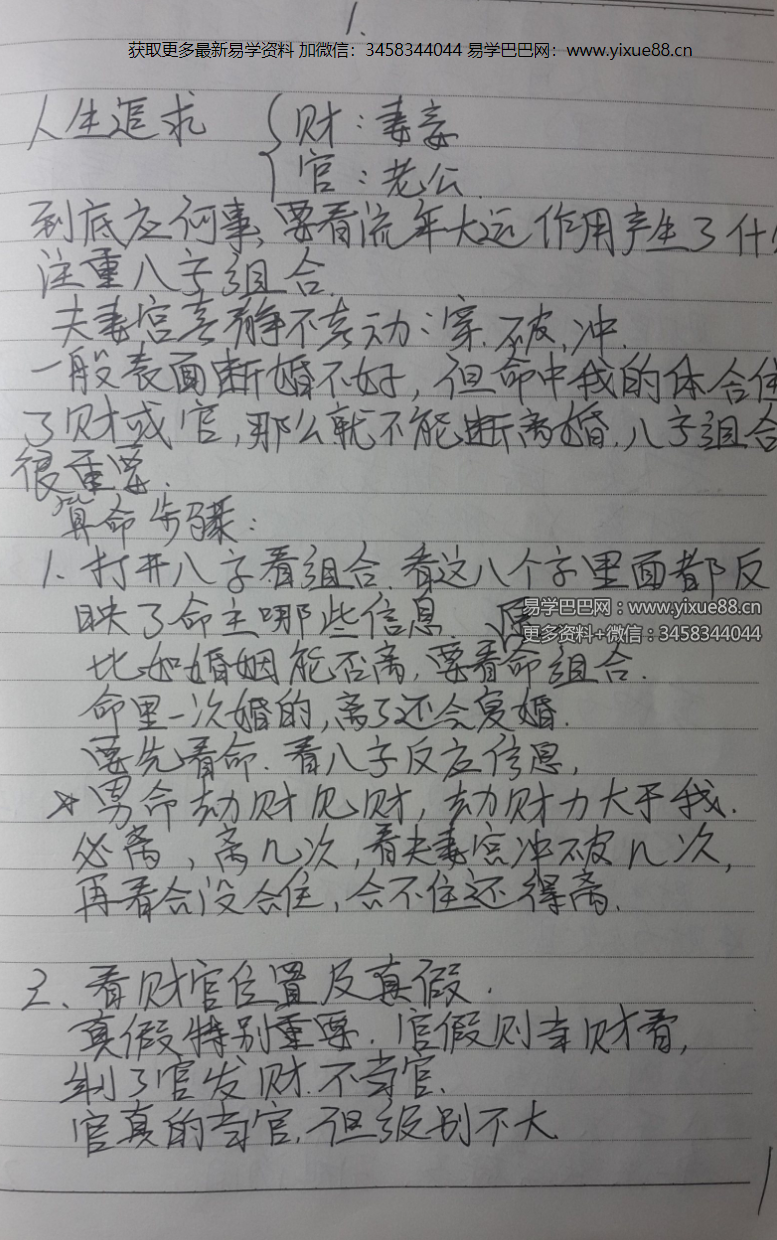 1.
获取更多最新易学资料 加微信：3458344044 易学巴巴网：www.yixue88.cn
人生追求 { 财：妻妾
官：老公
到底应何事，要看流年大运作用产生了什
注重八字组合.
夫妻宫喜静不喜动：穿.破.冲.
一般表面断婚不好，但命中我的体合住
了财或官，那么就不能断离婚.八字组合
很重要.
算命步骤：
1. 打开八字看组合.看这八个字里面都反
映了命主哪些信息.
易学巴巴网：www.yixue88.cn
更多资料+微信：3458344044
比如婚姻能否离，要看命组合.
命里一次婚的，离了还会复婚.
要先看命.看八字反应信息，
☆男命劫财见财，劫财力大于我.
必离，离几次，看夫妻宫冲破几次，
再看合没合住，合不住还得离.
2. 看财官位置及真假.
真假特别重要.官假则幸财看，
制了官发财.不当官.
官真的当官.但级别不大